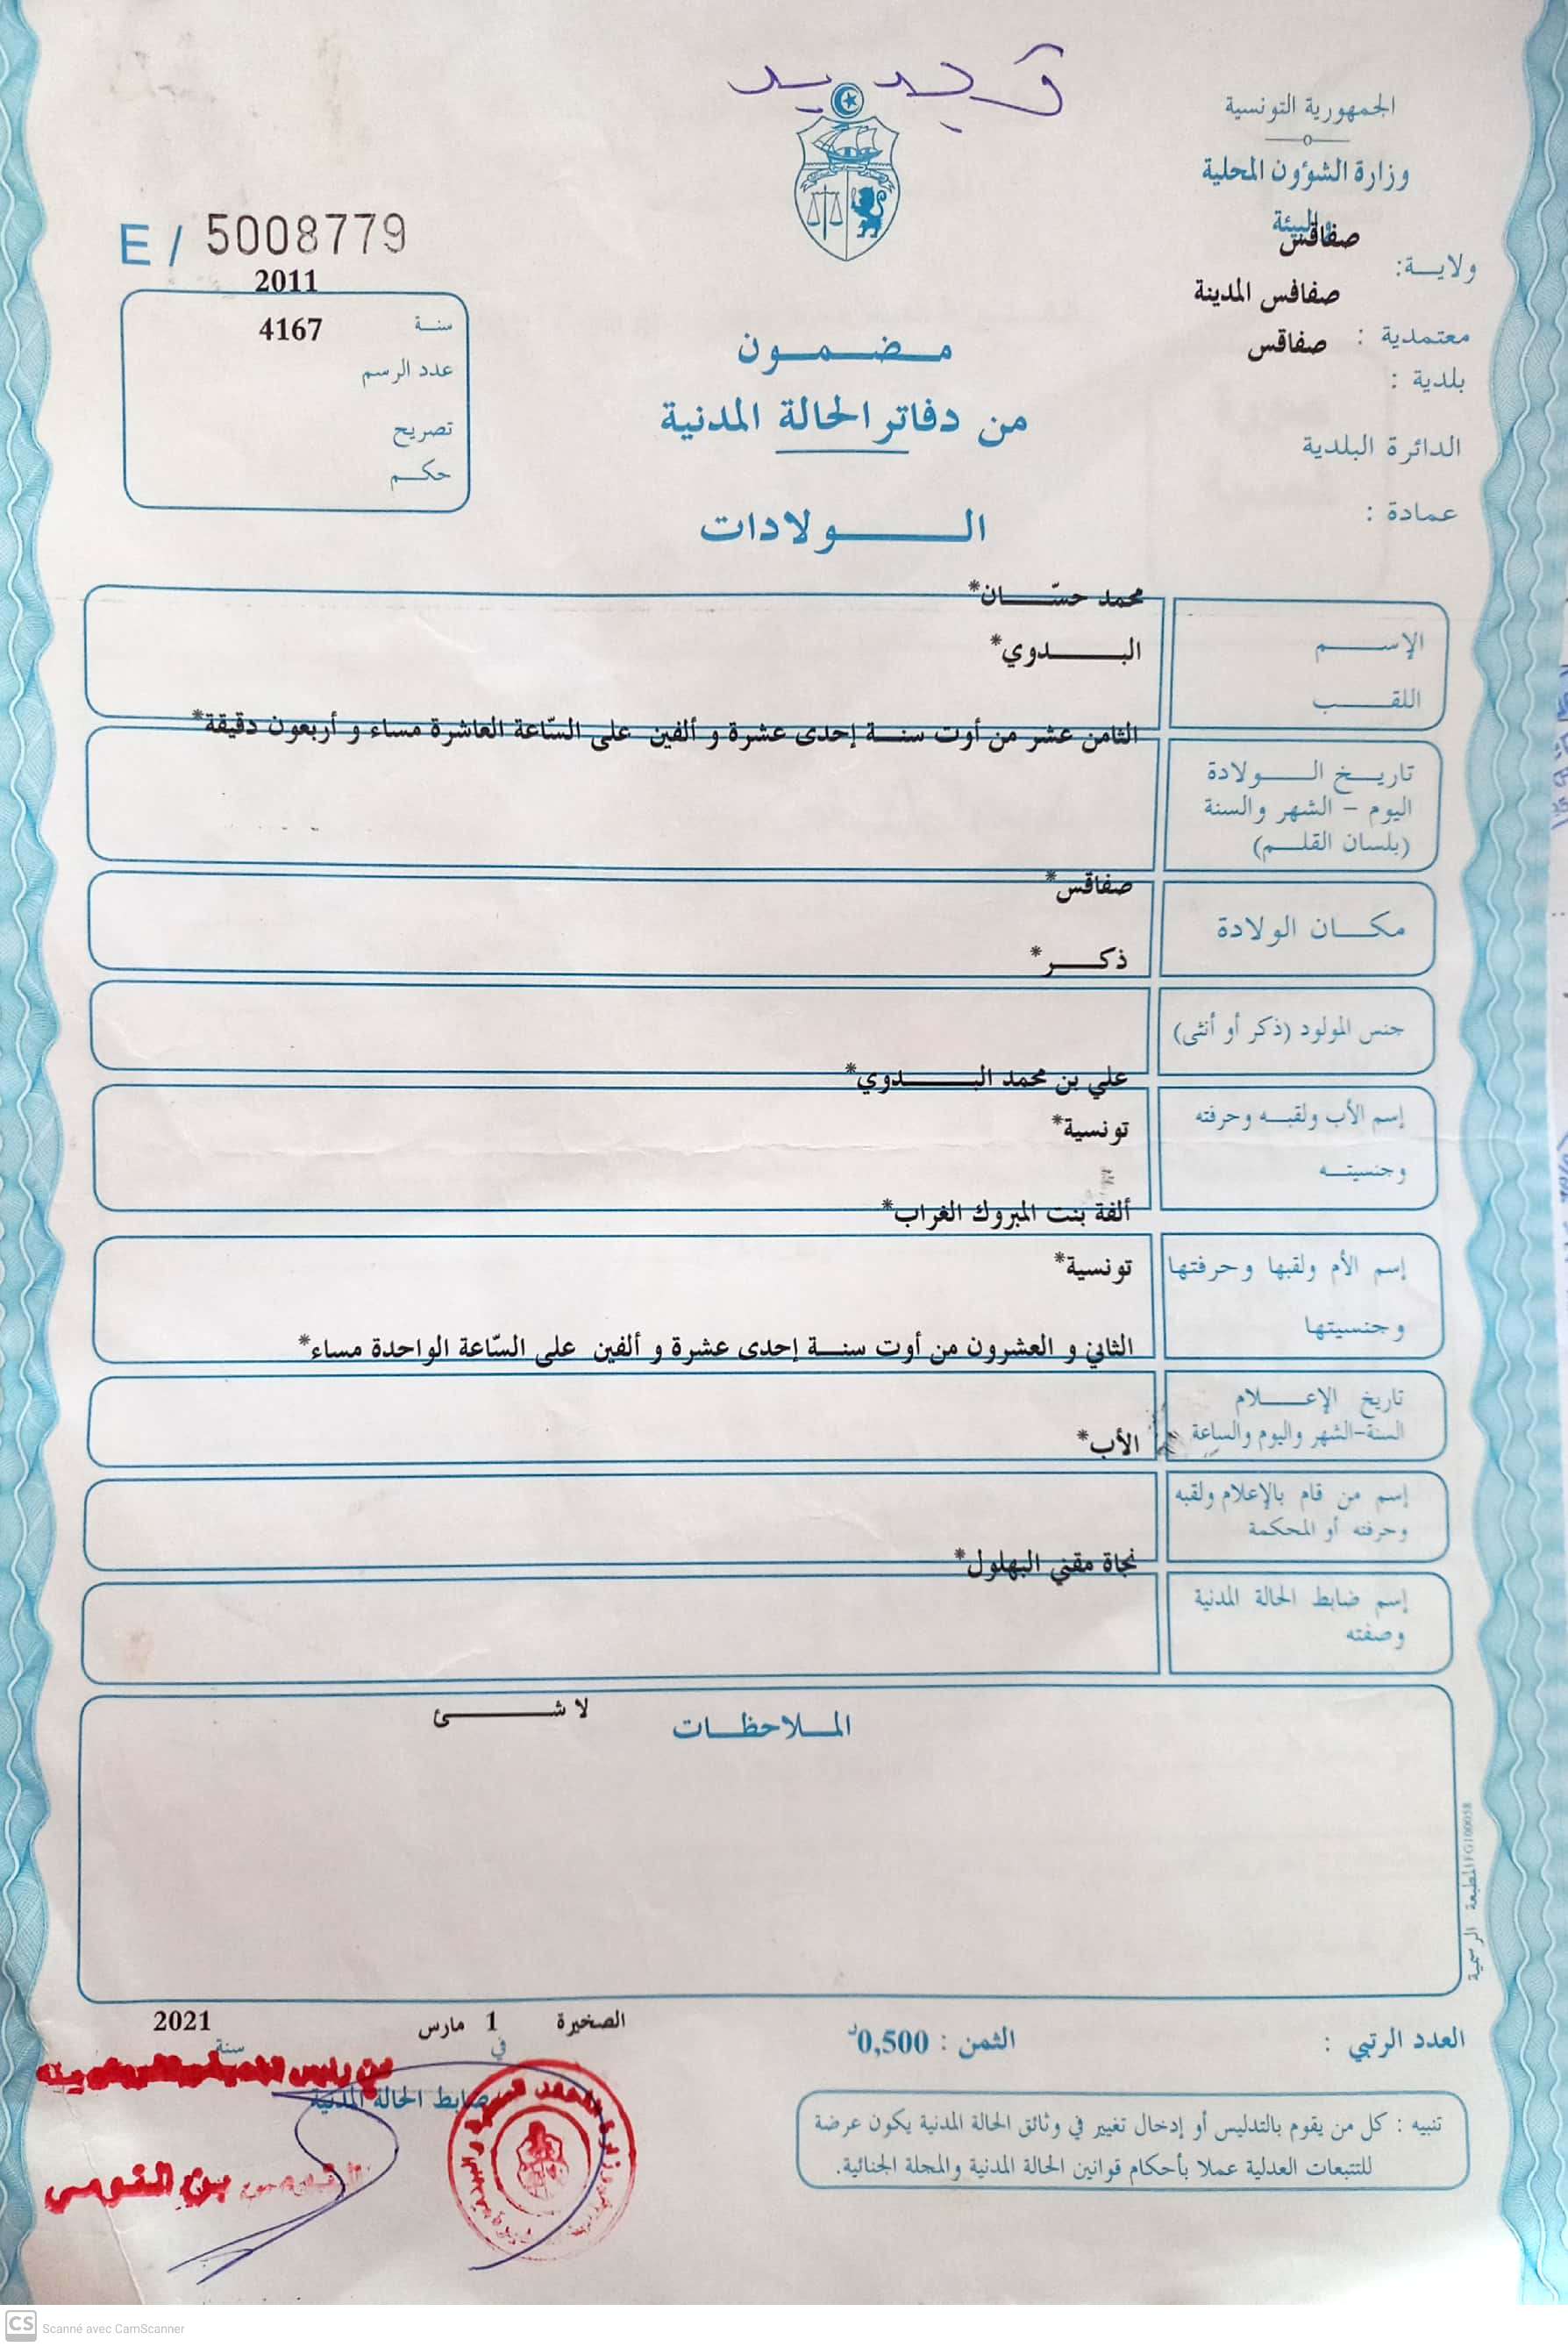 الجمهورية التونسية
وزارة الشؤون المحلية
والبيئة
صفاقس
ولايــة:
صفاقس المدينة
معتمدية :
صفاقس
بلدية :
الدائرة البلدية
عمادة :
E / 5008779
2011
سنـة
4167
عدد الرسم
تصريح
حكــم
مـضـمـون
من دفاتر الحالة المدنية
الــولادات
محمد حسّـــان*
الإســـم
البــــدوي*
اللقـــب
الثامن عشر من أوت سنــة إحدى عشرة و ألفين على السّاعة العاشرة مساء و أربعون دقيقة*
تاريـخ الــولادة
اليوم - الشهر والسنة
(بلسان القلـم)
صفاقس*
مكــان الولادة
ذكــر*
جنس المولود (ذكر أو أنثى)
علي بن محمد البــــدوي*
إسم الأب ولقبـه وحرفته
تونسية*
وجنسيتـه
ألفة بنت المبروك الغراب*
إسم الأم ولقبها وحرفتها
تونسية*
وجنسيتها
الثاني و العشرون من أوت سنــة إحدى عشرة و ألفين على السّاعة الواحدة مساء*
تاريخ الإعــلام
السنة-الشهر واليوم والساعة
الأب*
إسم من قام بالإعلام ولقبه
وحرفته أو المحكمة
نجاة مقني البهلول*
إسم ضابط الحالة المدنية
وصفته
المـلاحظـات
لا شـــئ
المطبعة الرسمية
العدد الرتبي :
الثمن : 0,500د
الصخيرة
في
1 مارس
سنة
2021
ضابط الحالة المدنية
تنبيه : كل من يقوم بالتدليس أو إدخال تغيير في وثائق الحالة المدنية يكون عرضة
للتتبعات العدلية عملا بأحكام قوانين الحالة المدنية والمجلة الجنائية.
CS Scanné avec CamScanner